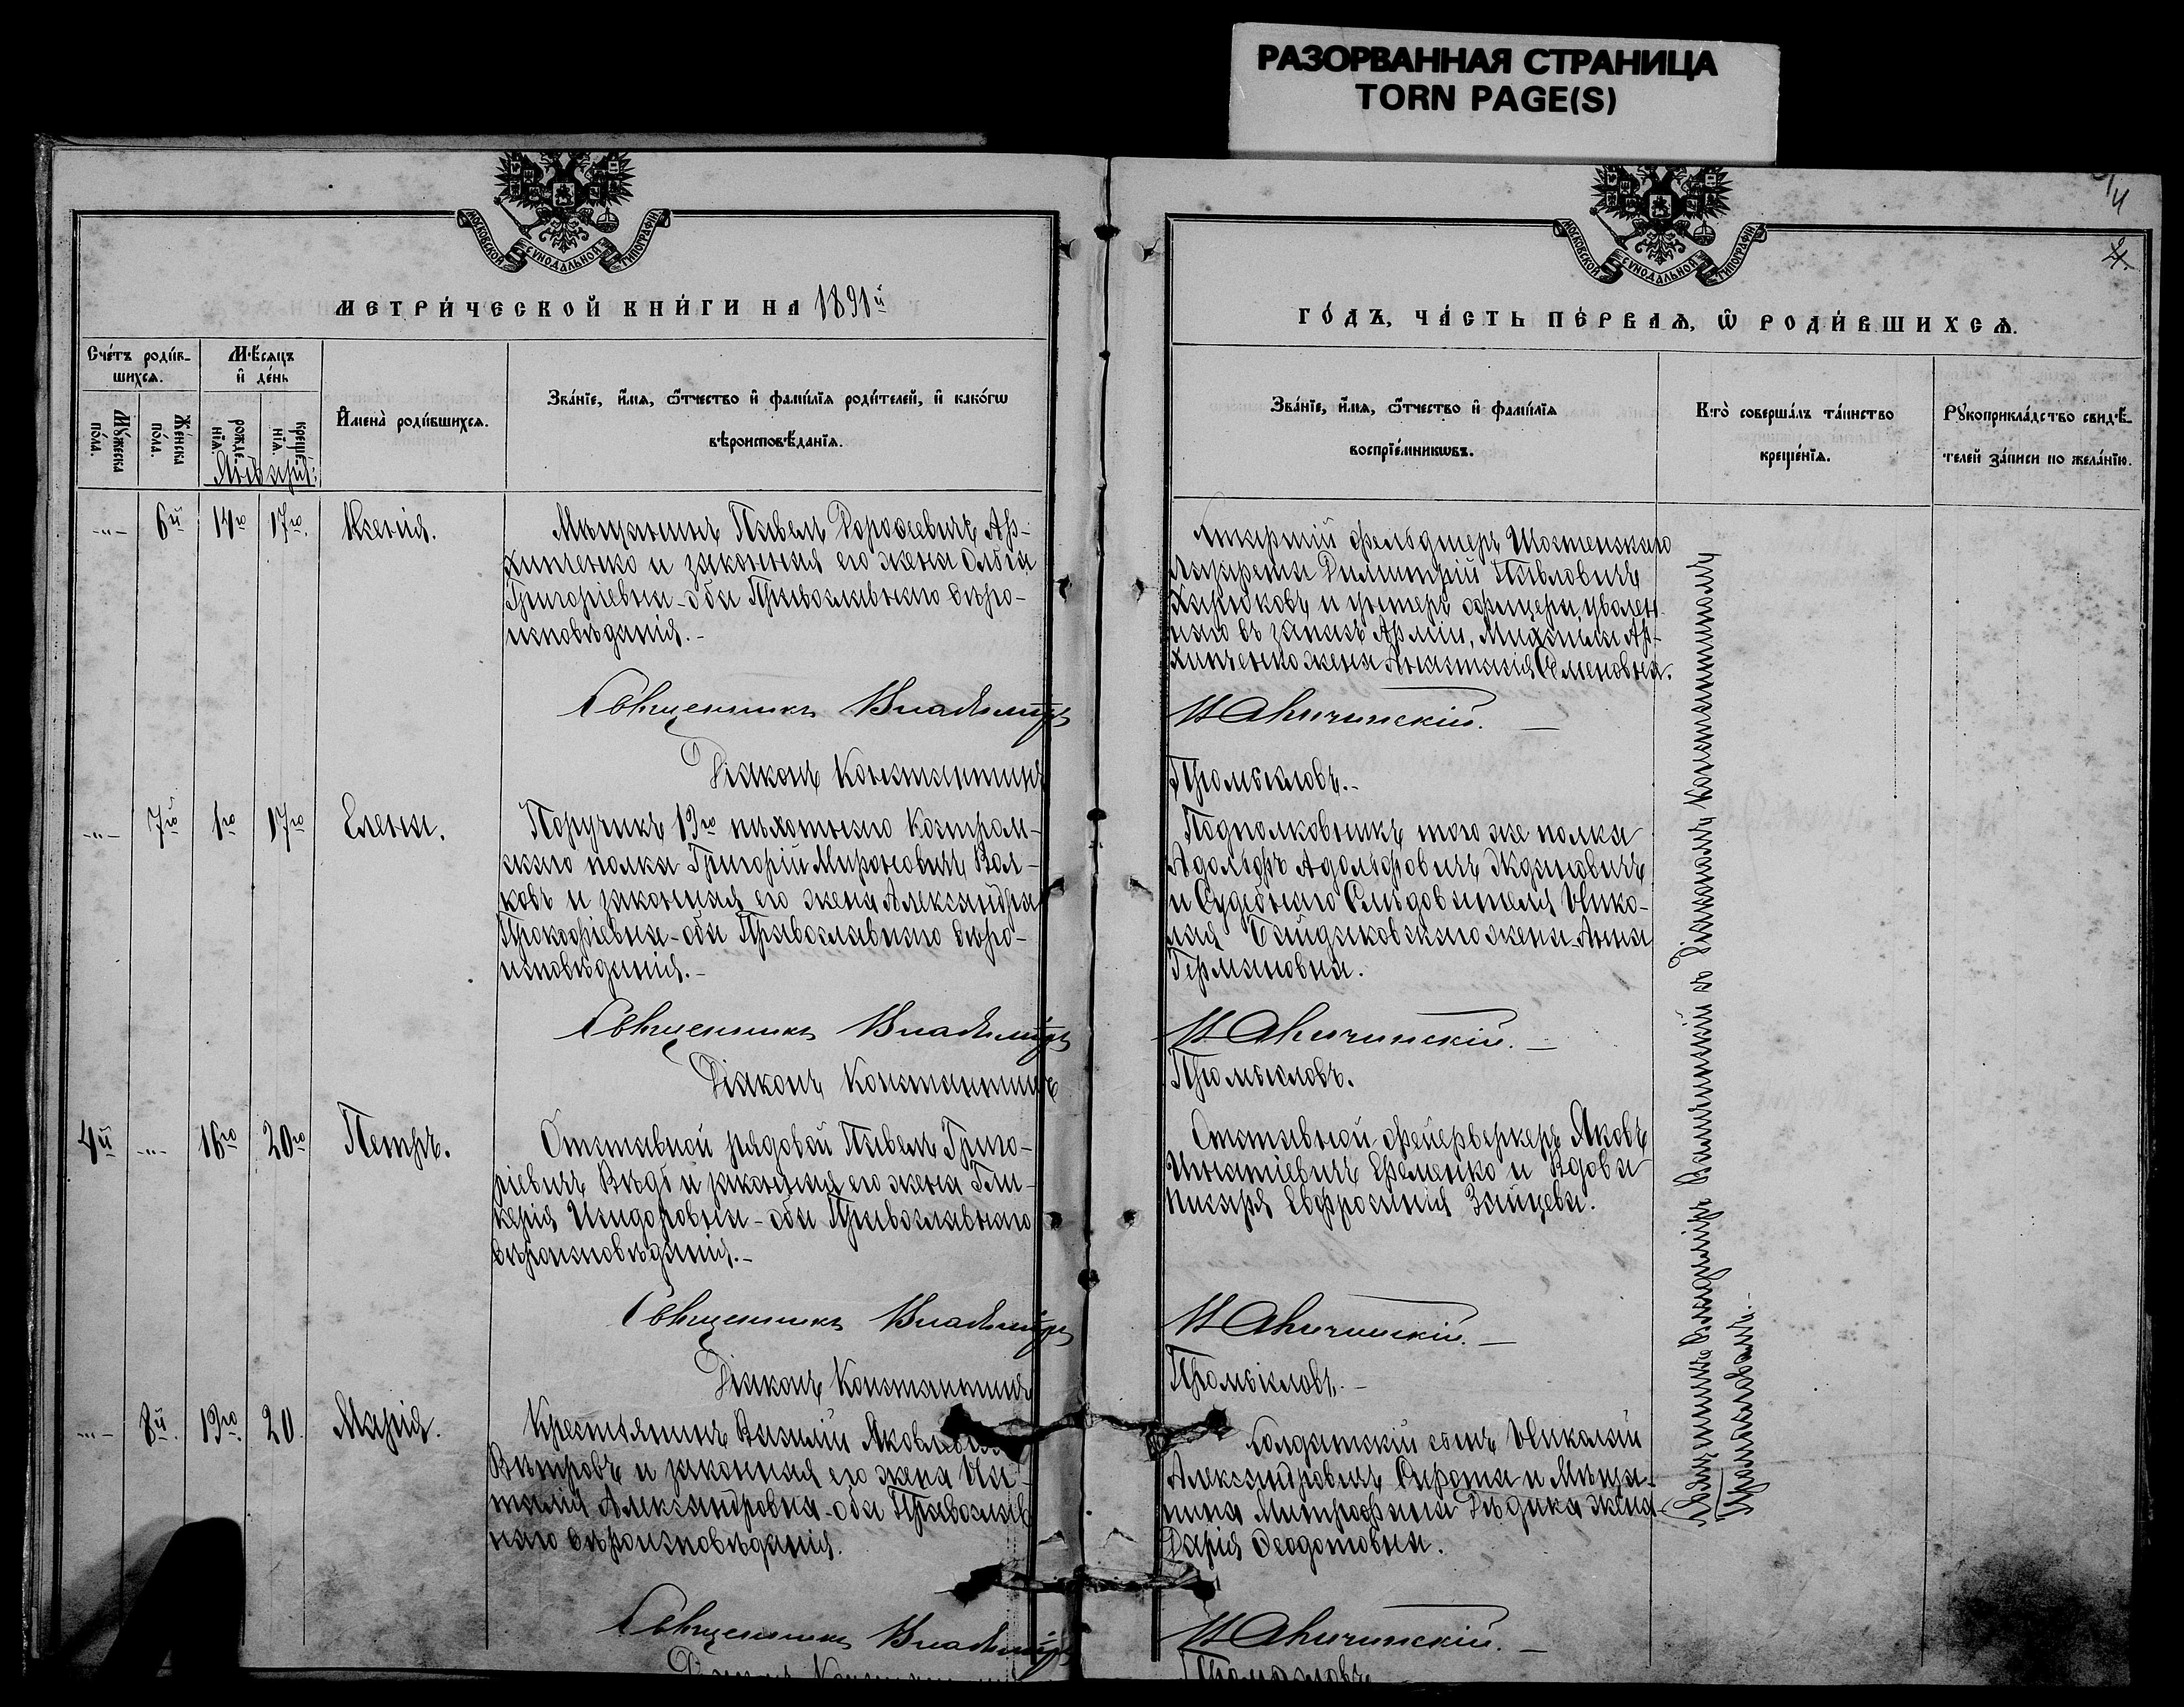 РАЗОРВАННАЯ СТРАНИЦА
TORN PAGE(S)
МОСКОВСКОЙ СѴНОДАЛЬНОЙ ТИПОГРАФІИ
МЕТРИ́ЧЕСКОЙ КНИ́ГИ НА 1891й
Сче́тъ роди́в-
шихся.
Мѣ́сяцъ
и҆ де́нь
Мꙋ́жеска по́ла.
Же́нска по́ла.
рожде-
нїѧ.
креще́-
нїѧ.
И҆мена̀ роди́вшихся.
Зва́нїе, и҆́мѧ, ѻ҆́тчество и҆ фами́лїѧ роди́телей, и҆ како́гѡ
вѣроисповѣ́данїѧ.
Января:
-"- 6й 14го 17го. Ксенія.
Мѣщанинъ Павелъ Дорофеевичъ Ар-
хипченко и законная его жена Ольга
Григоріевна - оба Православнаго вѣро-
исповѣданія.-
Священникъ Владиміръ
Діаконъ Константинъ
-"- 7го 1го 17го Елена.
Поручикъ 19го пѣхотнаго Костром-
скаго полка Григорій Мироновичъ Вол-
ковъ и законная его жена Александра
Прокофіевна - оба Православнаго вѣро-
исповѣданія.-
Священникъ Владиміръ
Діаконъ Константинъ
4й -"- 16го 20го Петръ.
Отставной рядовой Павелъ Григо-
ріевичъ и законная его жена Гли-
керія Исидоровна - оба Православнаго
вѣроисповѣданія.-
Священникъ Владиміръ
Діаконъ Константинъ
-"- 8й. 19го. 20. Марія.
Крестьянинъ Василій Яковлевичъ
Вѣтровъ и законная его жена На-
талія Александровна - оба Православ-
наго вѣроисповѣданія.
Священникъ Владиміръ
МОСКОВСКОЙ СѴНОДАЛЬНОЙ ТИПОГРАФІИ
ГО́ДЪ, ЧА́СТЬ ПЕ́РВАѦ, Ѡ҆ РОДИ́ВШИХСѦ.
Зва́нїе, и҆́мѧ, ѻ҆́тчество и҆ фами́лїѧ
воспрїе́мникѡвъ.
Кто̀ соверша́лъ та́инство
креще́нїѧ.
Рꙋкоприкла́дство свидѣ́-
телей за́писи по жела́нїю.
фельдшеръ Шостенскаго
Лазарета Димитрій Павловичъ
и унтеръ офицера, уволен-
наго въ запасъ Арміи, Михаила Ар-
хипченко жена Анастасія Семеновна.
Промысловъ.-
Подполковникъ того же полка
Адольфъ Адольфовичъ Ждановичъ
и Судебнаго Слѣдователя Нико-
лая Байдаковскаго жена Анна
Германовна.
Промысловъ.
Отставной фейерверкеръ Яковъ
Игнатіевичъ Еременко и Вдова
писаря Евфросинія Зайцева.
Промысловъ.-
Солдатскій сынъ Николай
Александровичъ Сирота и Мѣща-
нина Митрофана Дѣдика жена
Дарія Ѳеодотовна.
Священникъ Владиміръ съ Діакономъ Константиномъ
Промысловымъ.-